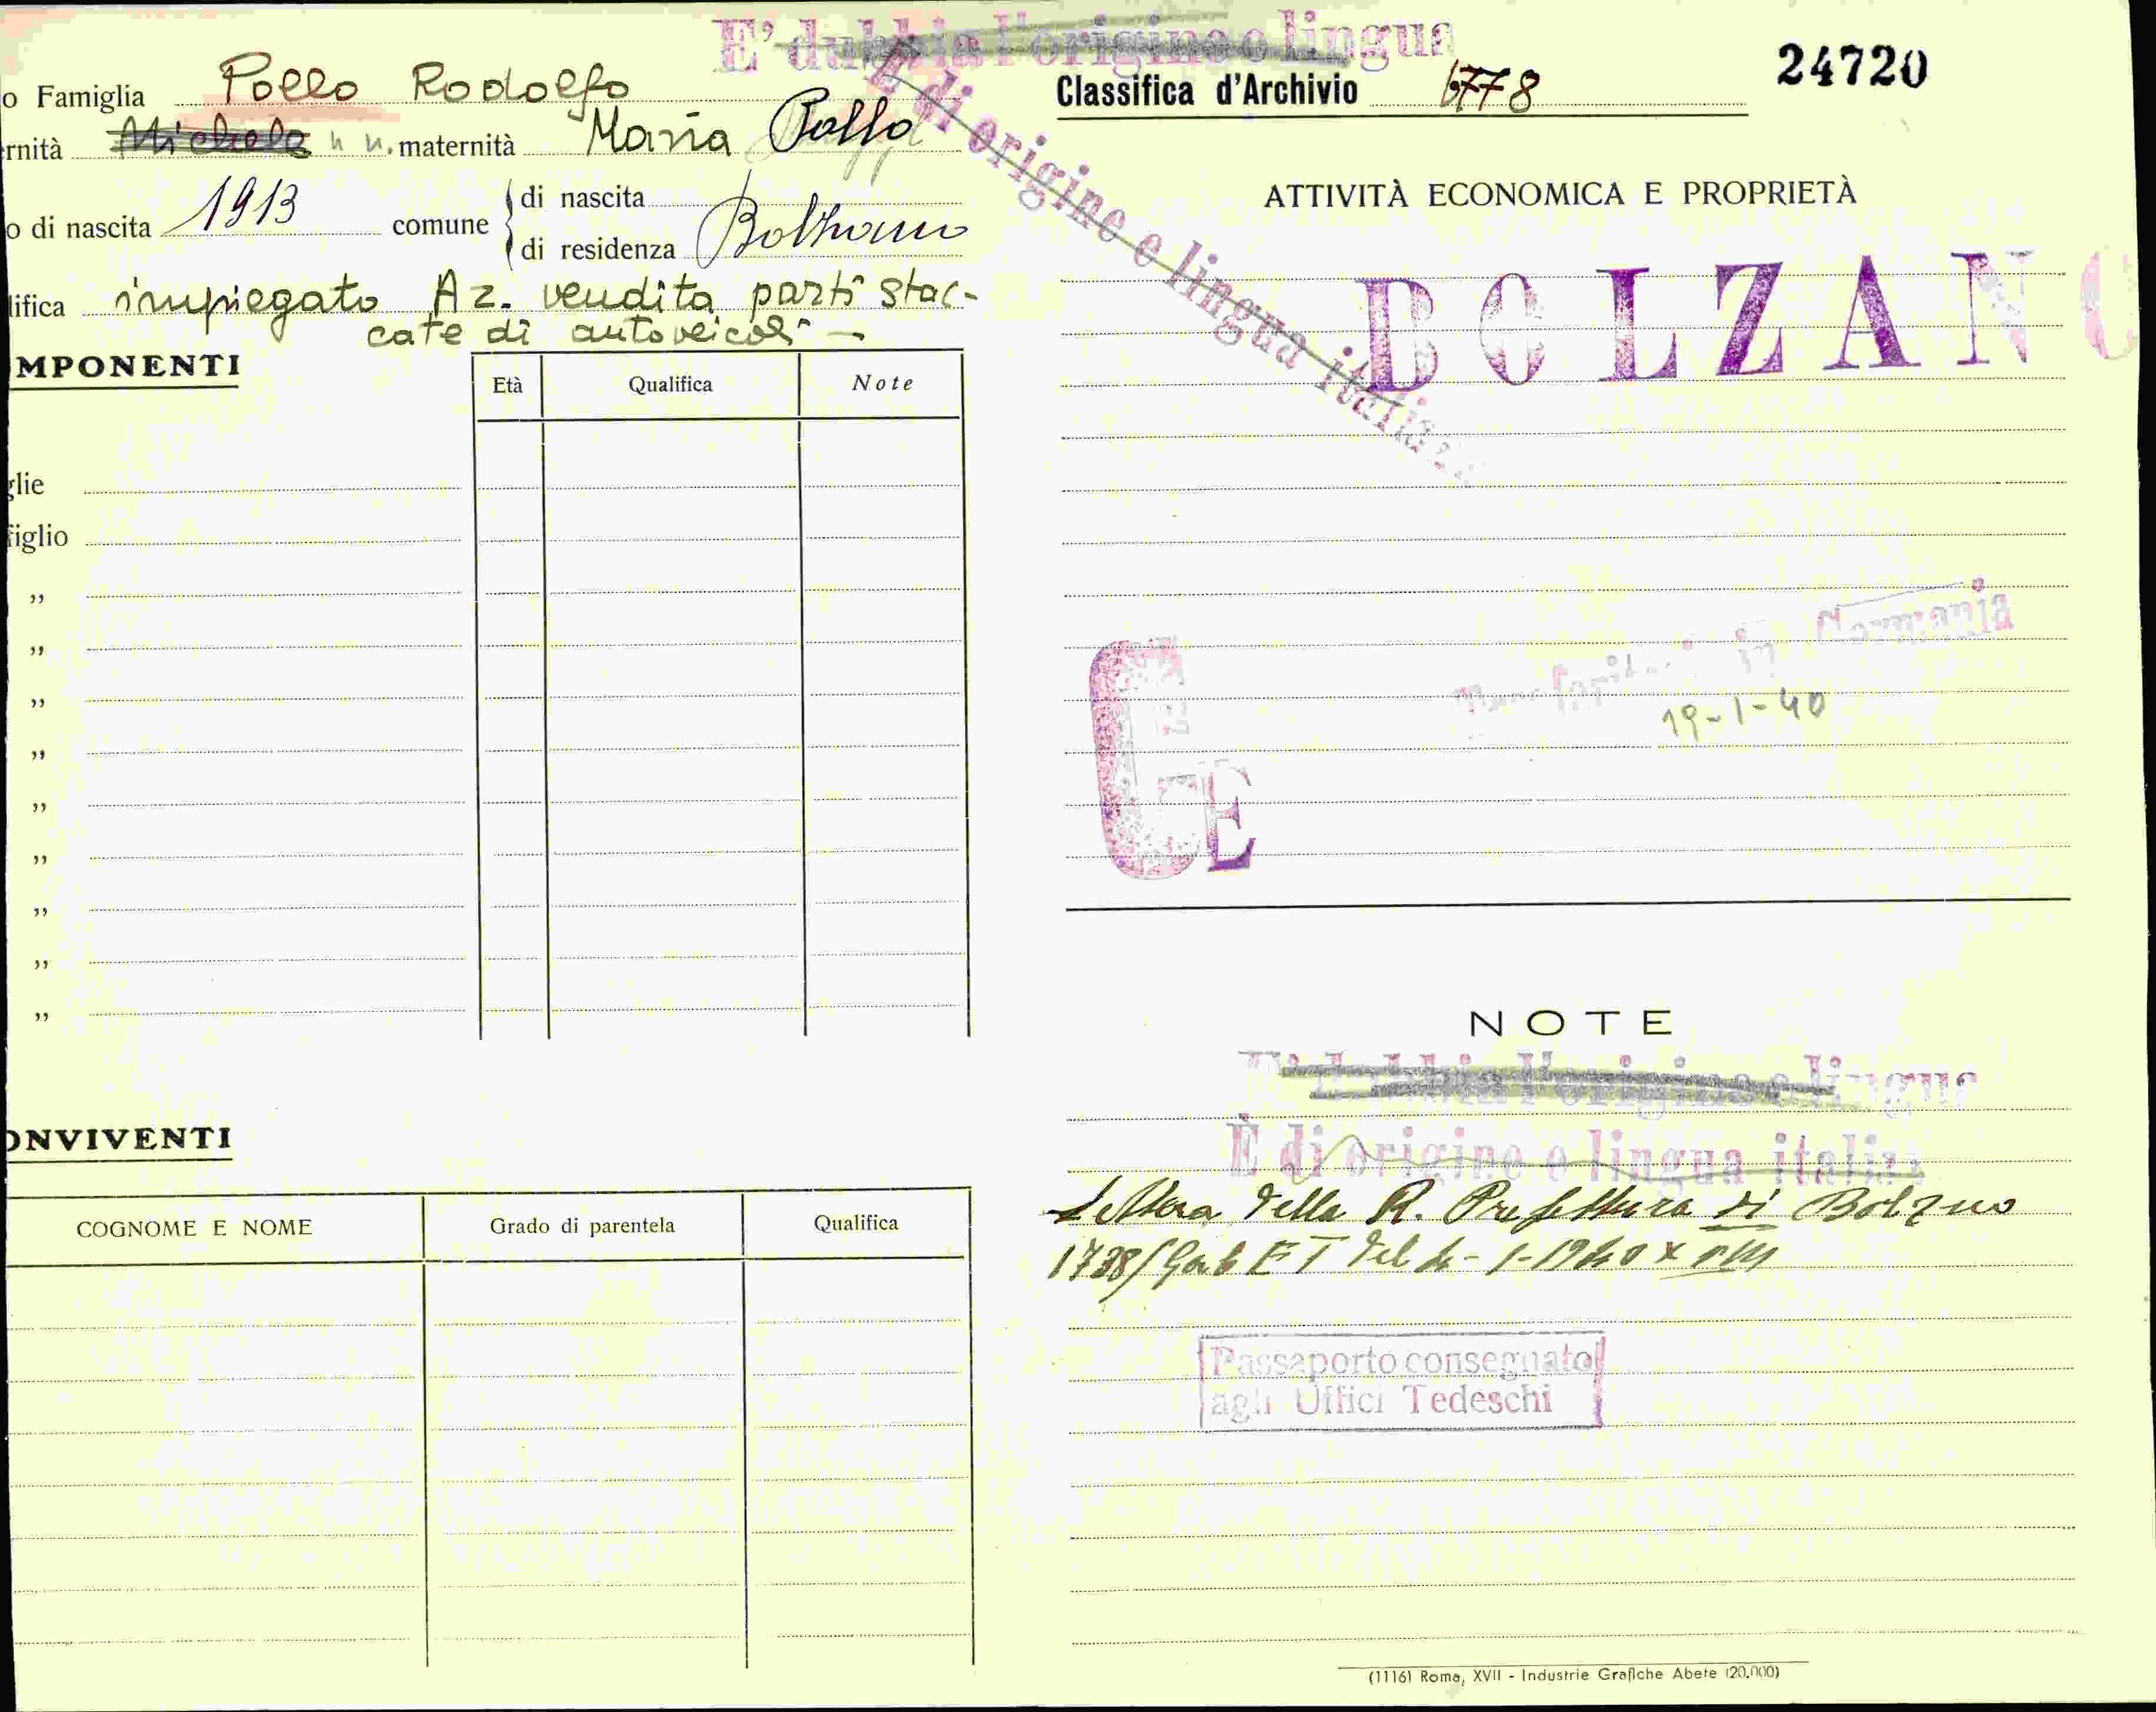 E' dubbia l'origine e lingua
o Famiglia Pollo Rodolfo
rnità Michele n n. maternità Maria Pollo
o di nascita 1913 comune di nascita
di residenza Bolzano
lifica impiegato Az. vendita parti stac-
cate di autoveicoli -
MPONENTI
Età Qualifica Note
glie
figlio
„
„
„
„
„
„
„
„
„
ONVIVENTI
COGNOME E NOME Grado di parentela Qualifica
È di origine e lingua italiana
Classifica d'Archivio 6778
24720
ATTIVITÀ ECONOMICA E PROPRIETÀ
BOLZANO
in Germania
19-1-40
E
NOTE
E' dubbia l'origine e lingua
È di origine e lingua italiana
Lettera della R. Prefettura di Bolzano
1738/Gab ET del 1-1940 XVIII
Passaporto consegnato
agli Uffici Tedeschi
(1116) Roma, XVII - Industrie Grafiche Abete (20.000)